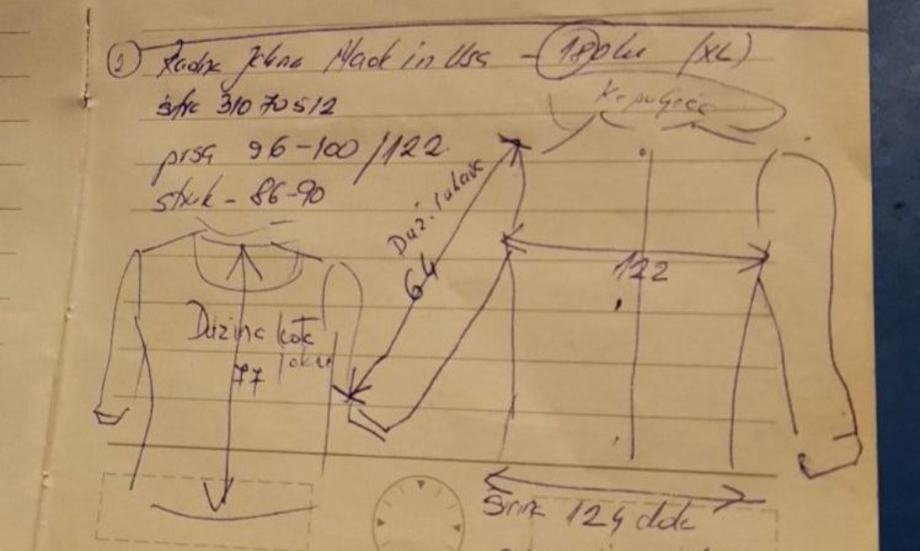 ① Radna Jakna Made in Usa - (XL)
šifre 31070512
prsa 96-100/122
struk - 86-90
Kapuljača
Duž. rukava
64
122
Dužina kole
77
Širina 124 dole